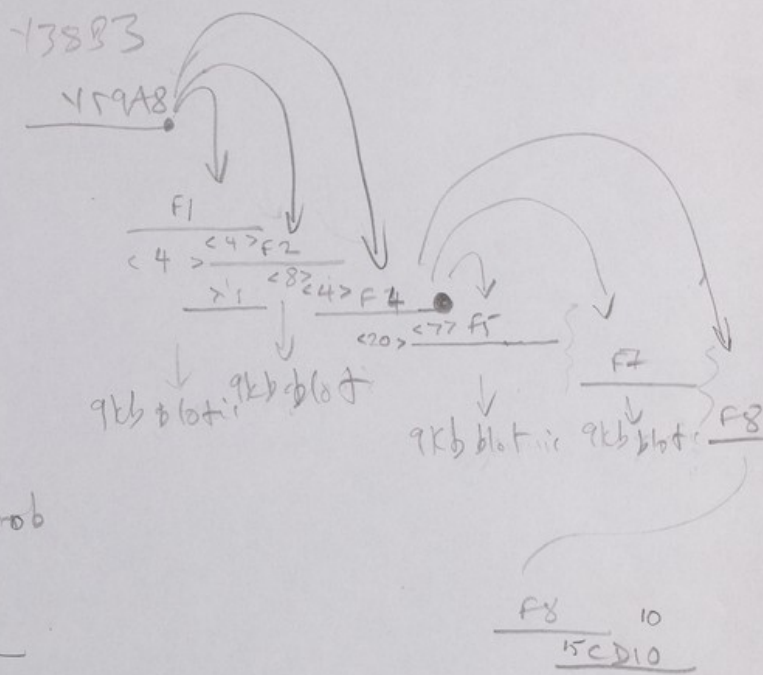 Y38B3
Y59A8
F1
<4> F2
<4>
<8>
<4> F4
λ's
<20> <7> F5
F7
F8
9kb blot
9kb blot
9kb blot
9kb blot
rob
F8 10
15CD10